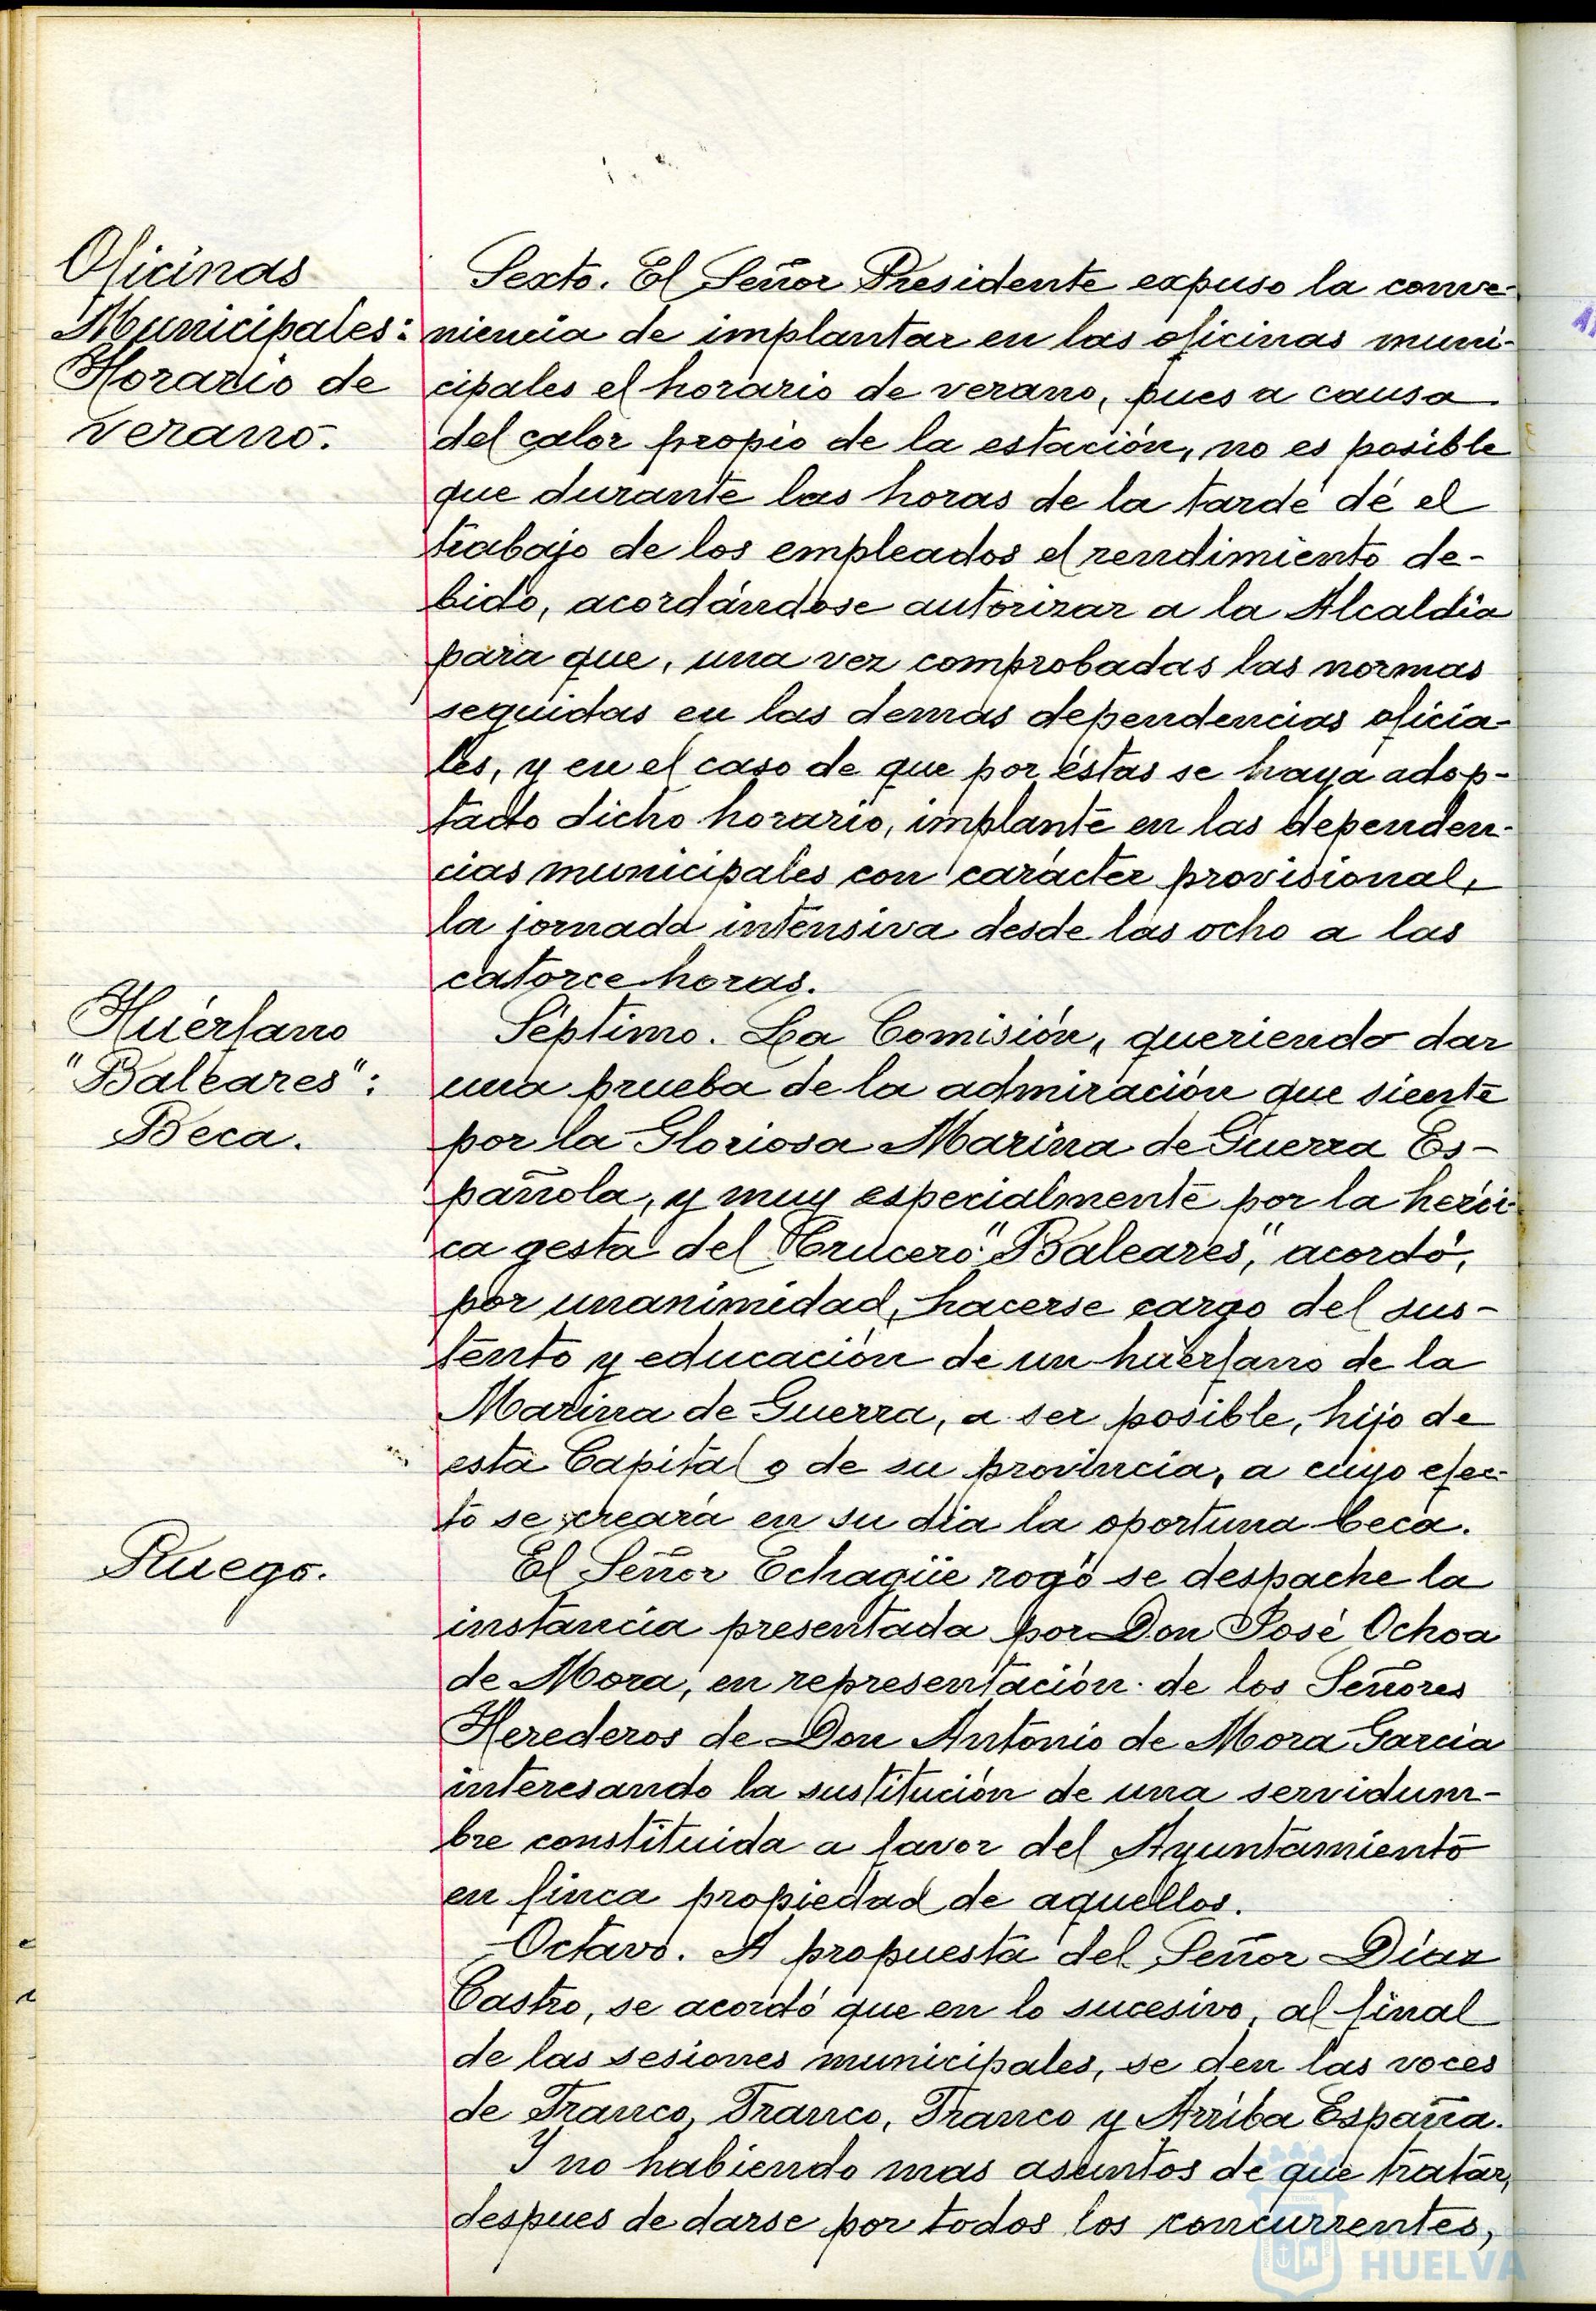 Oficinas
Municipales:
Horario de
verano.
Sexto. El Señor Presidente expuso la conve-
niencia de implantar en las oficinas muni-
cipales el horario de verano, pues a causa
del calor propio de la estación, no es posible
que durante las horas de la tarde dé el
trabajo de los empleados el rendimiento de-
bido, acordándose autorizar a la Alcaldía
para que, una vez comprobadas las normas
seguidas en las demás dependencias oficia-
les, y en el caso de que por éstas se haya adop-
tado dicho horario, implante en las dependen-
cias municipales con carácter provisional,
la jornada intensiva desde las ocho a las
catorce horas.
Huérfano
"Baleares":
Beca.
Séptimo. La Comisión, queriendo dar
una prueba de la admiración que siente
por la Gloriosa Marina de Guerra Es-
pañola, y muy especialmente por la herói-
ca gesta del Crucero "Baleares", acordó,
por unanimidad, hacerse cargo del sus-
tento y educación de un huérfano de la
Marina de Guerra, a ser posible, hijo de
esta Capital o de su provincia, a cuyo efec-
to se creará en su día la oportuna beca.
Ruego.
El Señor Echagüe rogó se despache la
instancia presentada por Don José Ochoa
de Mora, en representación de los Señores
Herederos de Don Antonio de Mora García
interesando la sustitución de una servidum-
bre constituida a favor del Ayuntamiento
en finca propiedad de aquellos.
Octavo. A propuesta del Señor Díaz
Castro, se acordó que en lo sucesivo, al final
de las sesiones municipales, se den las voces
de Franco, Franco, Franco y Arriba España.
Y no habiendo mas asuntos de que tratar,
despues de darse por todos los concurrentes,
HUELVA